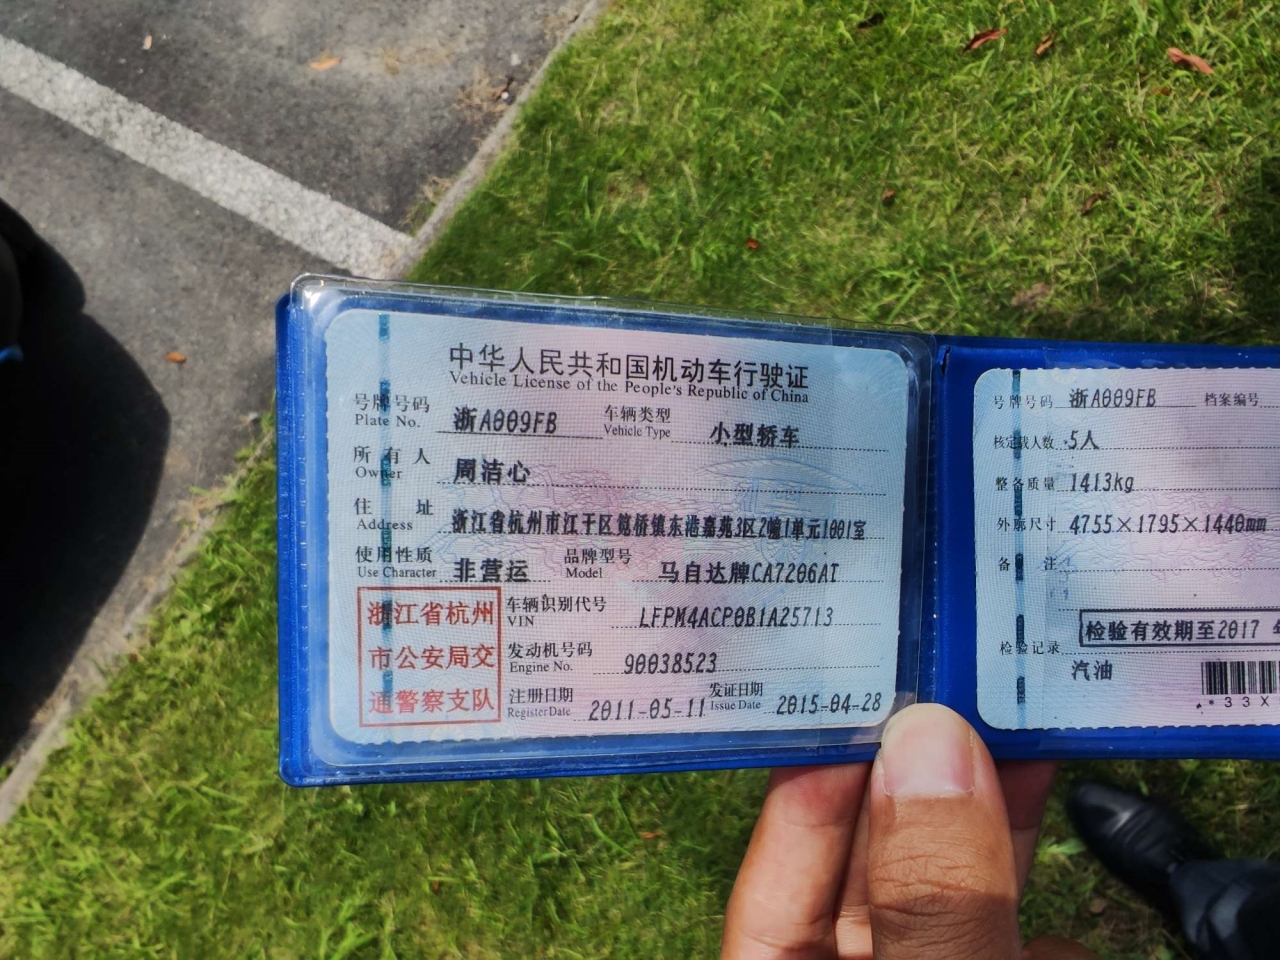 中华人民共和国机动车行驶证
Vehicle License of the People's Republic of China
号牌号码 浙A009FB 车辆类型 小型轿车
Plate No. Vehicle Type
所有人 周洁心
Owner
住址 浙江省杭州市江干区笕桥镇东港嘉苑3区2幢1单元1001室
Address
使用性质 非营运 品牌型号 马自达牌CA7206AT
Use Character Model
浙江省杭州
市公安局交
通警察支队
车辆识别代号 LFPM4ACP0B1A25713
VIN
发动机号码 90038523
Engine No.
注册日期 2011-05-11 发证日期 2015-04-28
Register Date Issue Date
号牌号码 浙A009FB 档案编号
核定载人数 5人
整备质量 1413kg
外廓尺寸 4755×1795×1440mm
备注
检验有效期至2017
检验记录
汽油
*33X